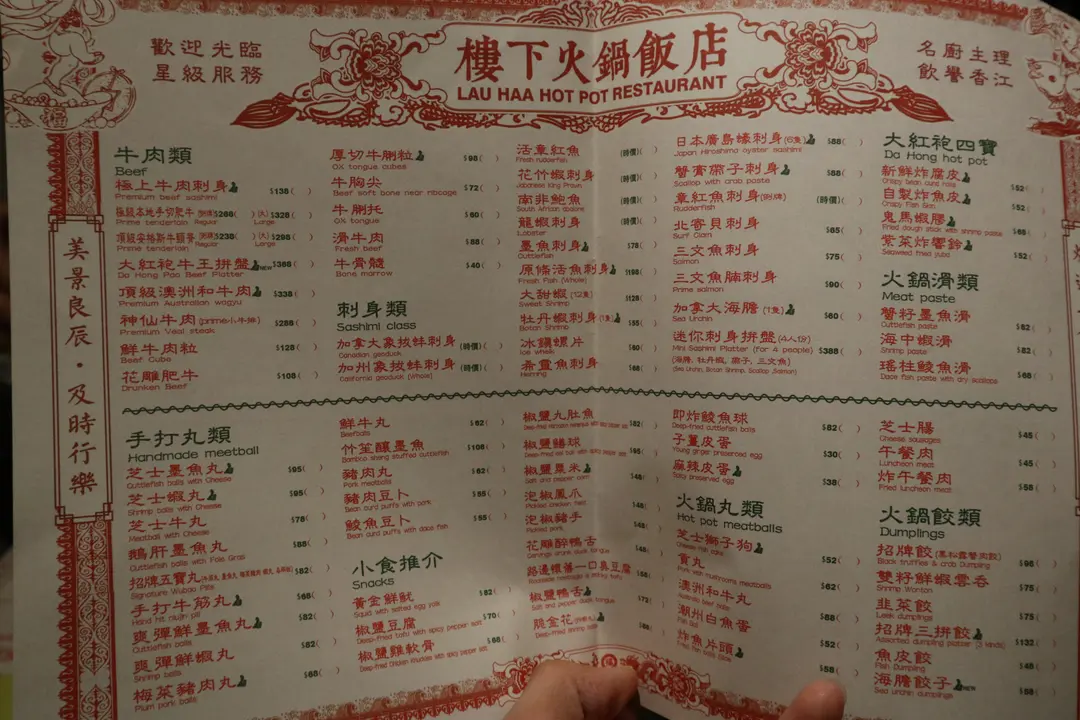 歡迎光臨
星級服務
樓下火鍋飯店
LAU HAA HOT POT RESTAURANT
名廚主理
飲譽香江
美景良辰·及時行樂
牛肉類
Beef
極上牛肉刺身 $138( )
Premium beef sashimi
極級本地手切肥牛
Prime tenderloin Regular Large
頂級安格斯牛頸脊
Prime tenderloin Regular Large
大紅袍牛王拼盤 NEW $388( )
Da Hong Pao Beef Platter
頂級澳洲和牛肉 $338( )
Premium Australian wagyu
神仙牛肉(prime小牛排) $288( )
Premium Veal steak
鮮牛肉粒 $128( )
Beef Cube
花雕肥牛 $108( )
Drunken Beef
厚切牛脷粒 $98( )
OX tongue cubes
牛胸尖 $72( )
Beef soft bone near ribcage
牛脷托 $60( )
OX tongue
滑牛肉 $88( )
Fresh beef
牛骨髓 $40( )
Bone marrow
刺身類
Sashimi class
加拿大象拔蚌刺身 (時價)( )
Canadian geoduck
加州象拔蚌刺身 (時價)( )
California geoduck (Whole)
活章紅魚 (時價)( )
Fresh rudderfish
花竹蝦刺身 (時價)( )
Japanese King Prawn
南非鮑魚 (時價)( )
South African abalone
龍蝦刺身 (時價)( )
Lobster
墨魚刺身 $78( )
Cuttlefish
原條活魚刺身 $198( )
Fresh Fish (Whole)
大甜蝦 (12隻) $128( )
Sweet Shrimp
牡丹蝦刺身(1隻) $55( )
Botan Shrimp
冰鎮螺片 $60( )
Ice whelk
希靈魚刺身 $68( )
Herring
日本廣島蠔刺身(6隻) $88( )
Japan Hiroshima oyster sashimi
蟹膏帶子刺身 $68( )
Scallop with crab paste
章紅魚刺身 (時價)( )
Rudderfish
北寄貝刺身 $65( )
Surf Clam
三文魚刺身 $75( )
Salmon
三文魚腩刺身 $90( )
Prime salmon
加拿大海膽 (1隻) $60( )
Sea Urchin
迷你刺身拼盤(4人份) $388( )
Mini Sashimi Platter (for 4 people)
(海膽, 牡丹蝦, 帶子, 三文魚)
(Sea Urchin, Botan Shrimp, Scallop, Salmon)
大紅袍四寶
Da Hong hot pot
新鮮炸腐皮 $52( )
自製炸魚皮 $52( )
Crispy Fish Skin
鬼馬蝦膠 $68( )
Fried dough stick with shrimp paste
紫菜炸響鈴 $52( )
Seaweed fried yuba
火鍋滑類
Meat paste
蟹籽墨魚滑 $82( )
Cuttlefish paste
海中蝦滑 $82( )
Shrimp paste
瑤柱鯪魚滑 $68( )
Dace fish paste with dry scallops
手打丸類
Handmade meatball
芝士墨魚丸 $95( )
Cuttlefish balls with Cheese
芝士蝦丸 $95( )
Shrimp balls with Cheese
芝士牛丸 $78( )
Meatball with Cheese
鵝肝墨魚丸 $88( )
Cuttlefish balls with Foie Gras
招牌五寶丸 $82( )
Signature Wubao Pills
手打牛筋丸 $68( )
爽彈鮮墨魚丸 $82( )
Cuttlefish balls
爽彈鮮蝦丸 $82( )
Shrimp balls
梅菜豬肉丸 $68( )
Plum pork balls
鮮牛丸 $62( )
Beefballs
竹笙釀墨魚 $108( )
Bamboo shang stuffed cuttlefish
豬肉丸 $62( )
Pork meatballs
豬肉豆卜 $55( )
Bean curd puffs with pork
鯪魚豆卜 $55( )
Bean curd puffs with dace fish
小食推介
Snacks
黃金鮮魷 $82( )
Squid with salted egg yolk
椒鹽豆腐 $70( )
Deep-fried tofu with spicy pepper salt
椒鹽雞軟骨 $68( )
椒鹽九肚魚 $82( )
椒鹽鱔球 $85( )
椒鹽粟米 $48( )
Salt and pepper corn
泡椒鳳爪 $48( )
Pickled chicken feet
泡椒豬手 $48( )
Pickled pork
花雕醉鴨舌
路邊檔舊一口臭豆腐
椒鹽鴨舌 $72( )
Salt and pepper duck tongue
脆金花 $68( )
即炸鯪魚球 $82( )
Deep-fried cuttlefish balls
子薑皮蛋 $30( )
Young ginger preserved egg
麻辣皮蛋 $38( )
Spicy preserved egg
火鍋丸類
Hot pot meatballs
芝士獅子狗 $52( )
Cheese fish cake
貢丸 $62( )
Pork with mushrooms meatballs
澳洲和牛丸 $88( )
Australia beef balls
潮州白魚蛋 $52( )
Fish ball
炸魚片頭 $58( )
芝士腸 $45( )
Cheese sausages
午餐肉 $45( )
Luncheon meat
炸午餐肉 $58( )
Fried luncheon meat
火鍋餃類
Dumplings
招牌餃(黑松露蟹肉餃) $96( )
Black truffles & crab Dumpling
雙籽鮮蝦雲吞 $75( )
Shrimp Wonton
韭菜餃 $75( )
Leek dumplings
招牌三拼餃 $132( )
Assorted dumpling platter (3 kinds)
魚皮餃 $48( )
Fish Dumpling
海膽餃子 NEW $68( )
Sea urchin dumplings